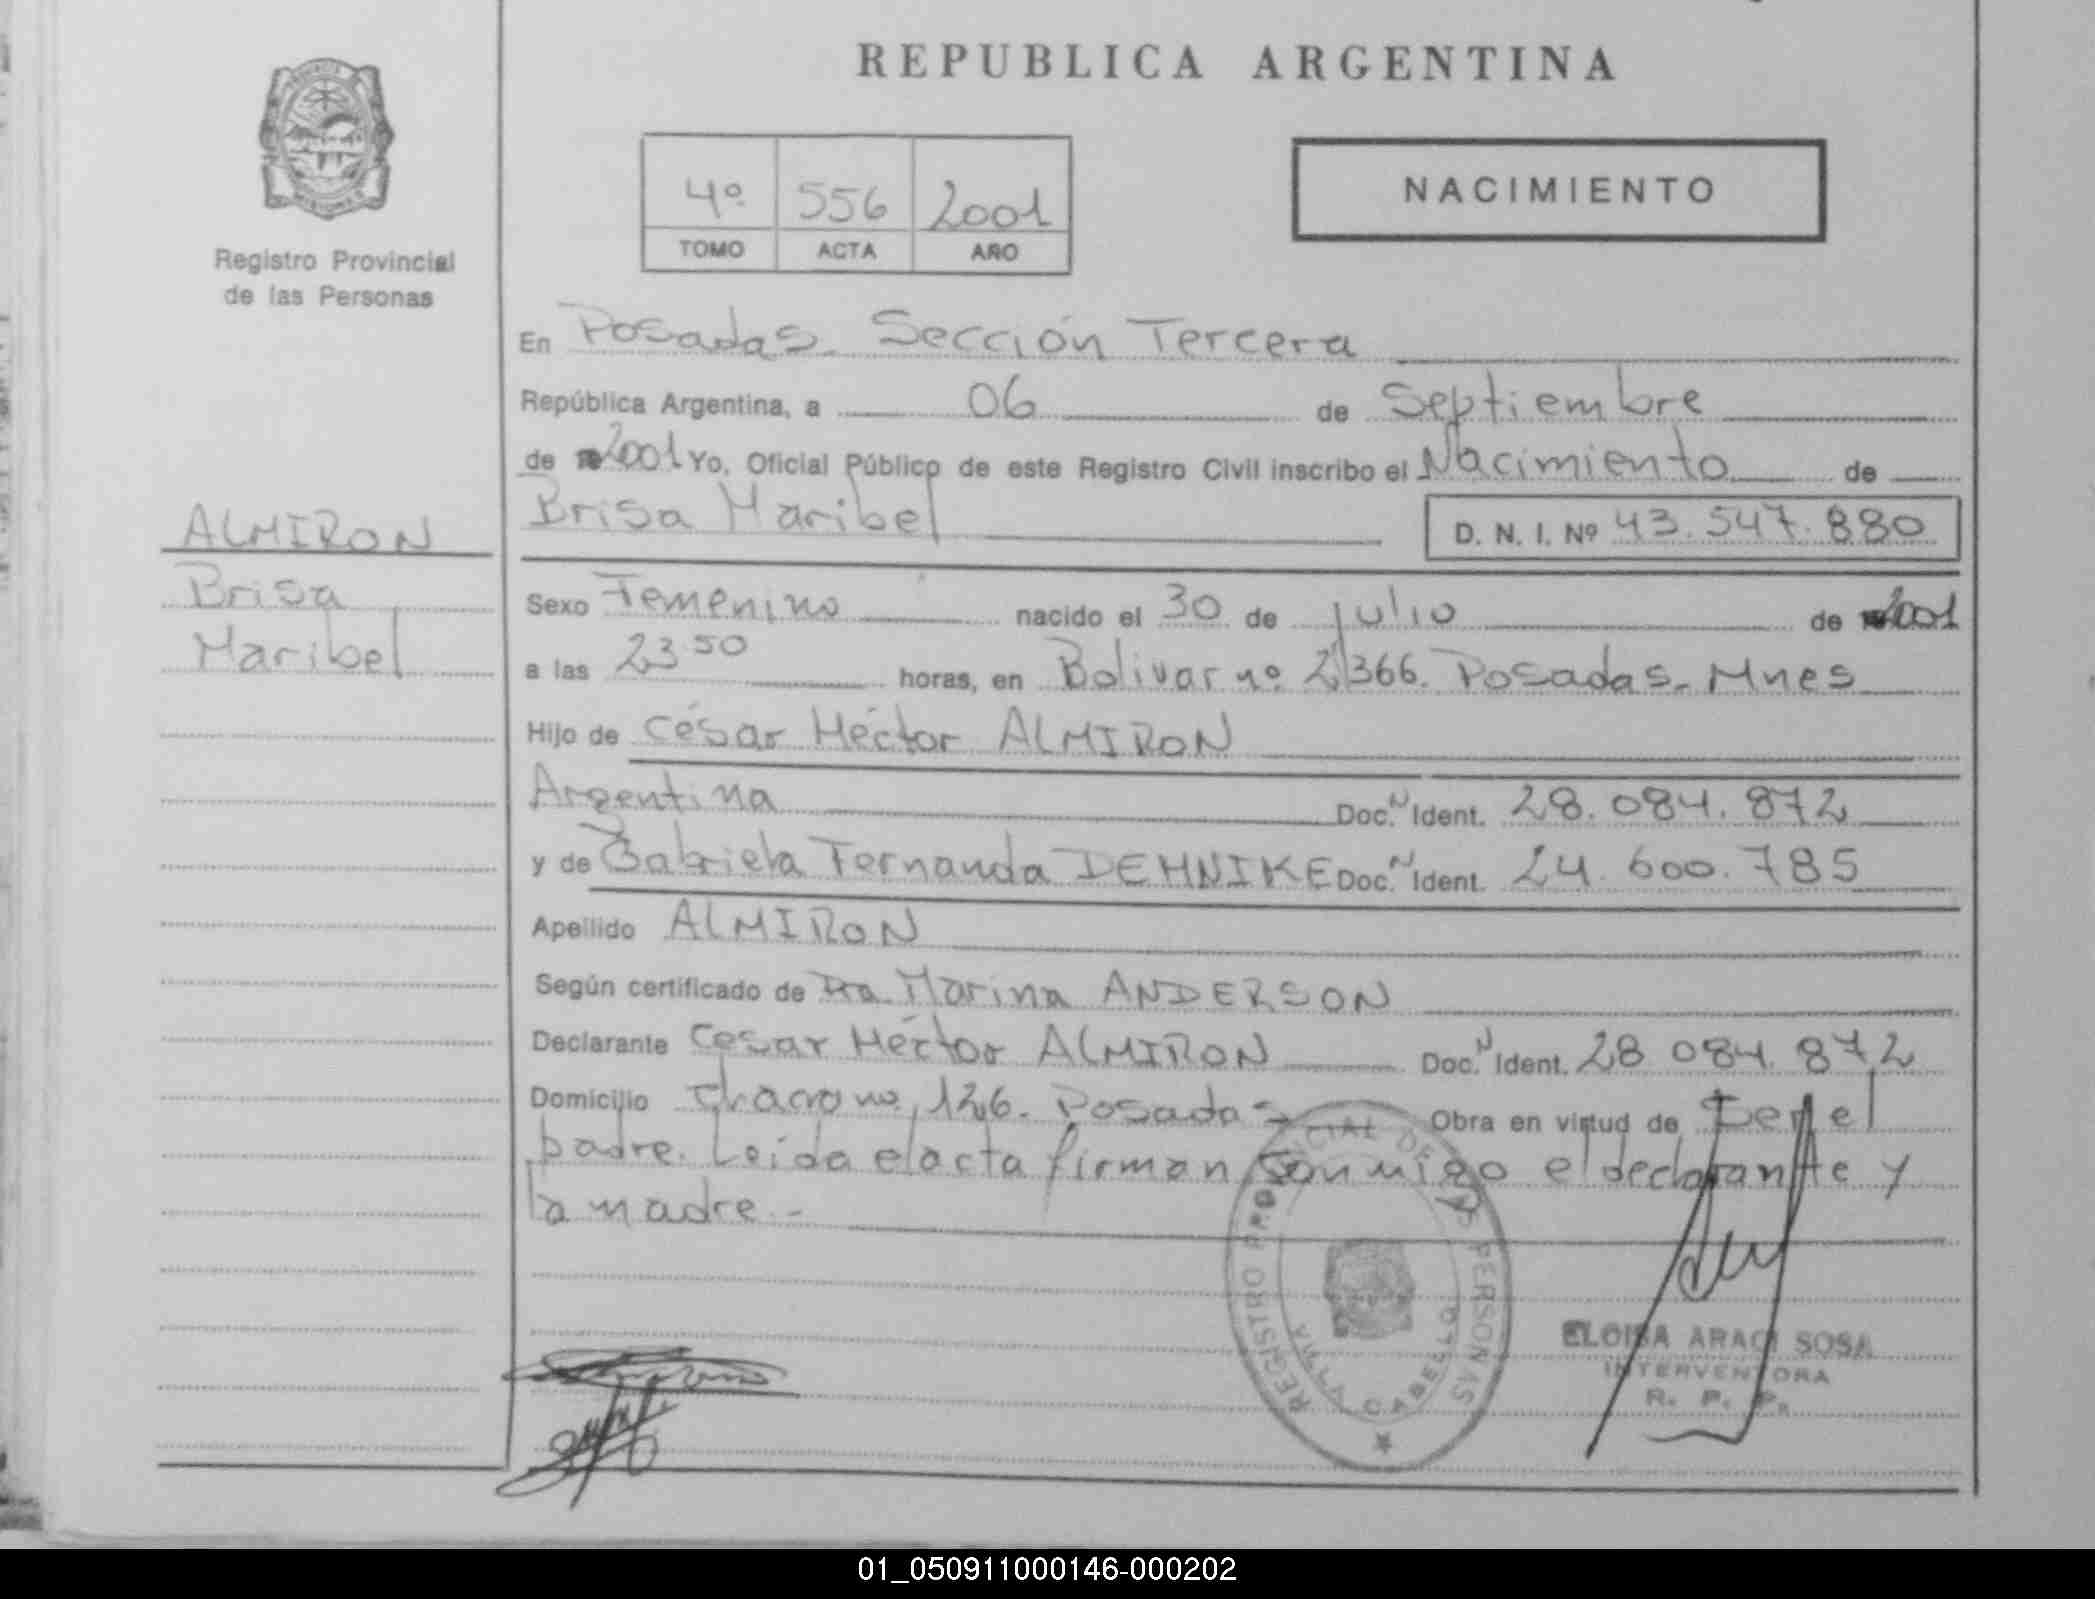 REPUBLICA ARGENTINA
4º 556 2001
TOMO ACTA AÑO
NACIMIENTO
Registro Provincial
de las Personas
En Posadas. Sección Tercera
República Argentina, a 06 de Septiembre
de 2001 Yo, Oficial Público de este Registro Civil inscribo el Nacimiento de
Brisa Maribel D. N. I. Nº 43.547.880
ALMIRON
Brisa
Maribel
Sexo Femenino nacido el 30 de julio de 2001
a las 23 50 horas, en Bolivar nº 2366. Posadas. Mnes
Hijo de César Héctor ALMIRON
Argentina Doc. N Ident. 28.084.872
y de Gabriela Fernanda DEHNIKE Doc. N Ident. 24.600.785
Apellido ALMIRON
Según certificado de Dra. Marina ANDERSON
Declarante Cesar Héctor ALMIRON Doc. N Ident. 28 084. 872
Domicilio 126. Posadas Obra en virtud de Ser el
padre. Leída el acta firman conmigo el declarante y
la madre. -
REGISTRO PROVINCIAL DE LAS PERSONAS
VILLA CABELLO
ELOISA ARACI SOSA
INTERVENTORA
R. P. P.
01_050911000146-000202